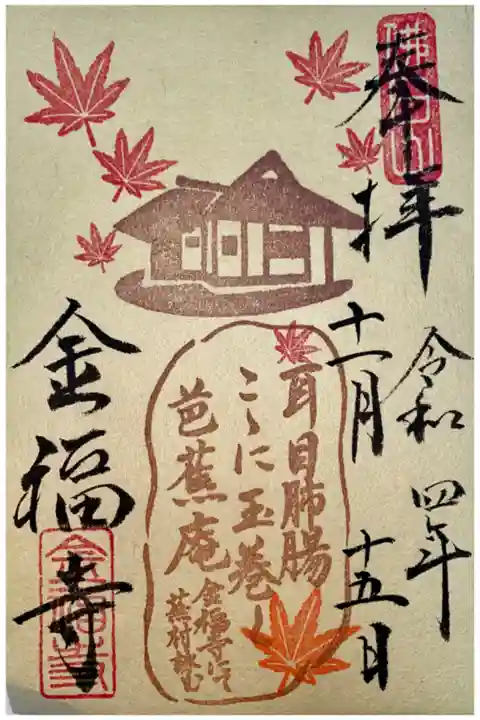 奉拝
令和四年
十一月十五日
耳目肺腸
こゝに玉巻く
芭蕉庵
金福寺にて
蕪村試む
金福寺